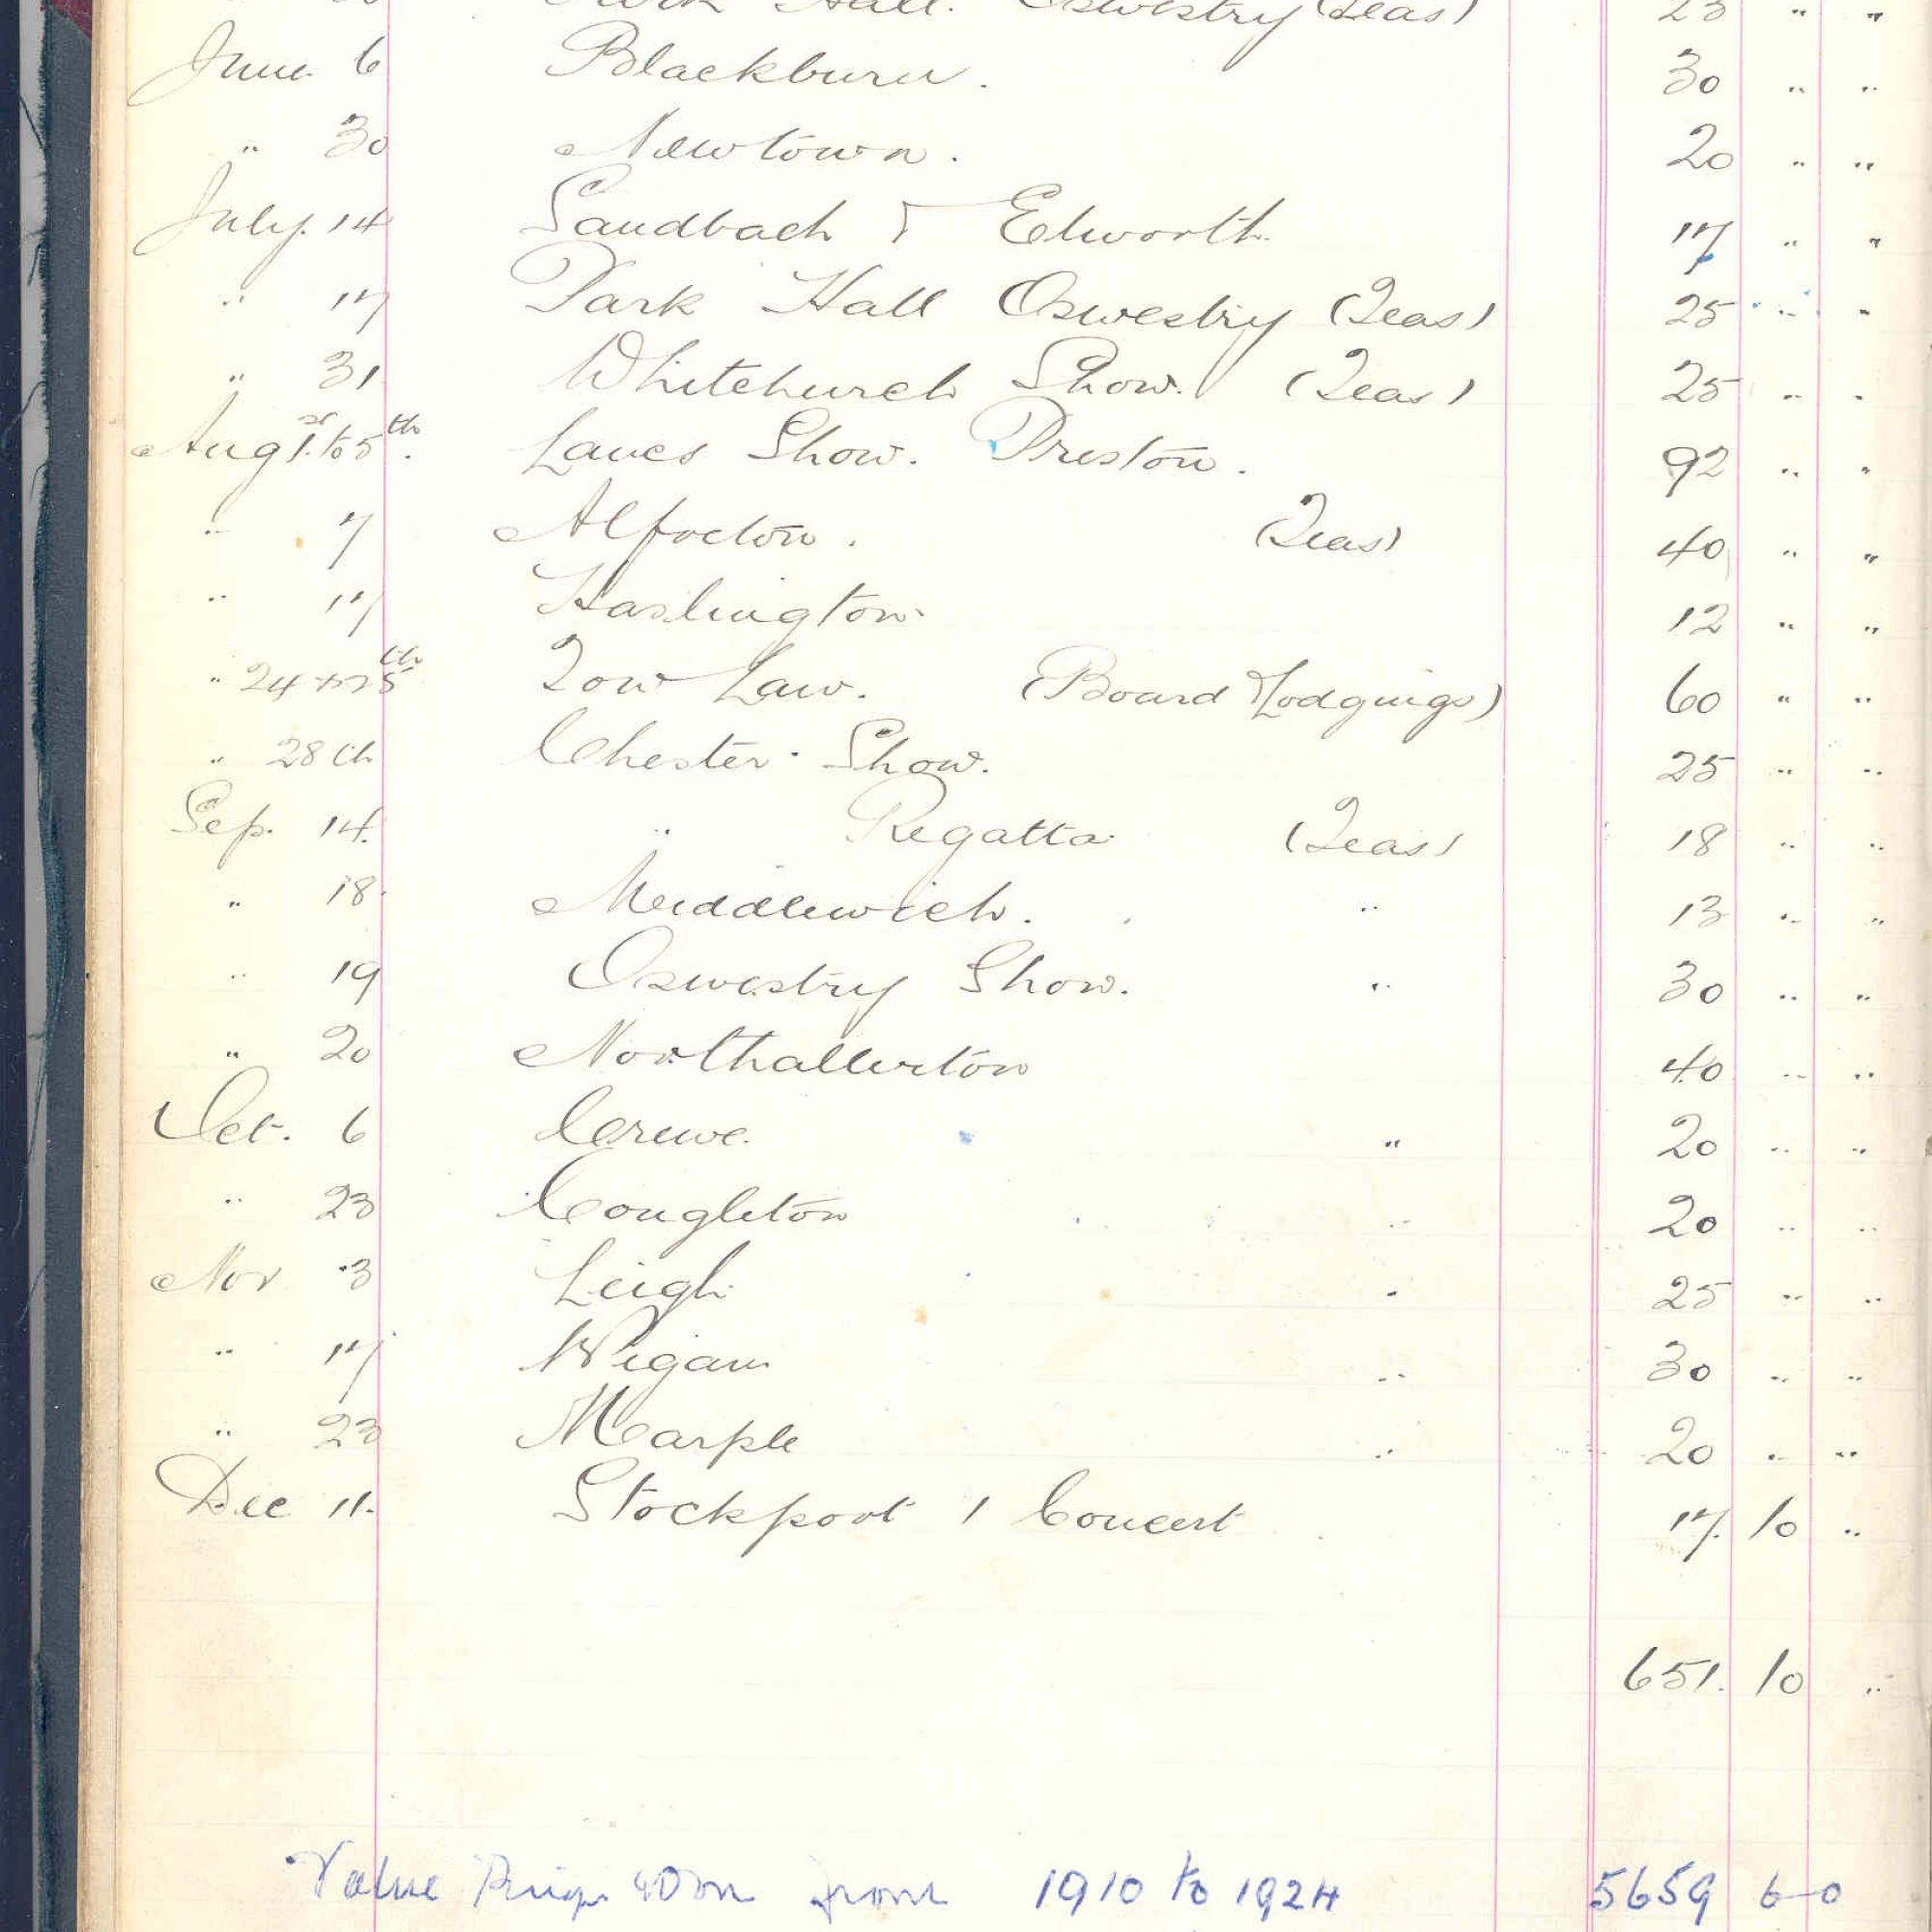 Park Hall. Oswestry (Teas) 25 " "
June 6 Blackburn. 30 " "
" 30 Newtown. 20 " "
July. 14 Sandbach & Elworth. 17 " "
" 17 Park Hall Oswestry (Teas) 25 " "
" 31 Whitchurch Show. (Teas) 25 " "
Aug 1st to 5th. Lancs Show. Preston. 92 " "
" 7 Alfreton. (Teas) 40 " "
" 17 Haslington 12 " "
" 24 + 25th Tow Law. (Board & Lodgings) 60 " "
" 28th Chester Show. 25 " "
Sep. 14. " Regatta (Teas) 18 " "
" 18 Middlewich. " 13 " "
" 19 Oswestry Show. " 30 " "
" 20 Northallerton 40 " "
Oct. 6 Crewe. " 20 " "
" 23 Congleton " 20 " "
Nov 3 Leigh " 25 " "
" 17 Wigan " 30 " "
" 23 Marple " 20 " "
Dec 11. Stockport 1 Concert 17. 10 "
651. 10 "
Value from 1910 to 1924 5659 6-0